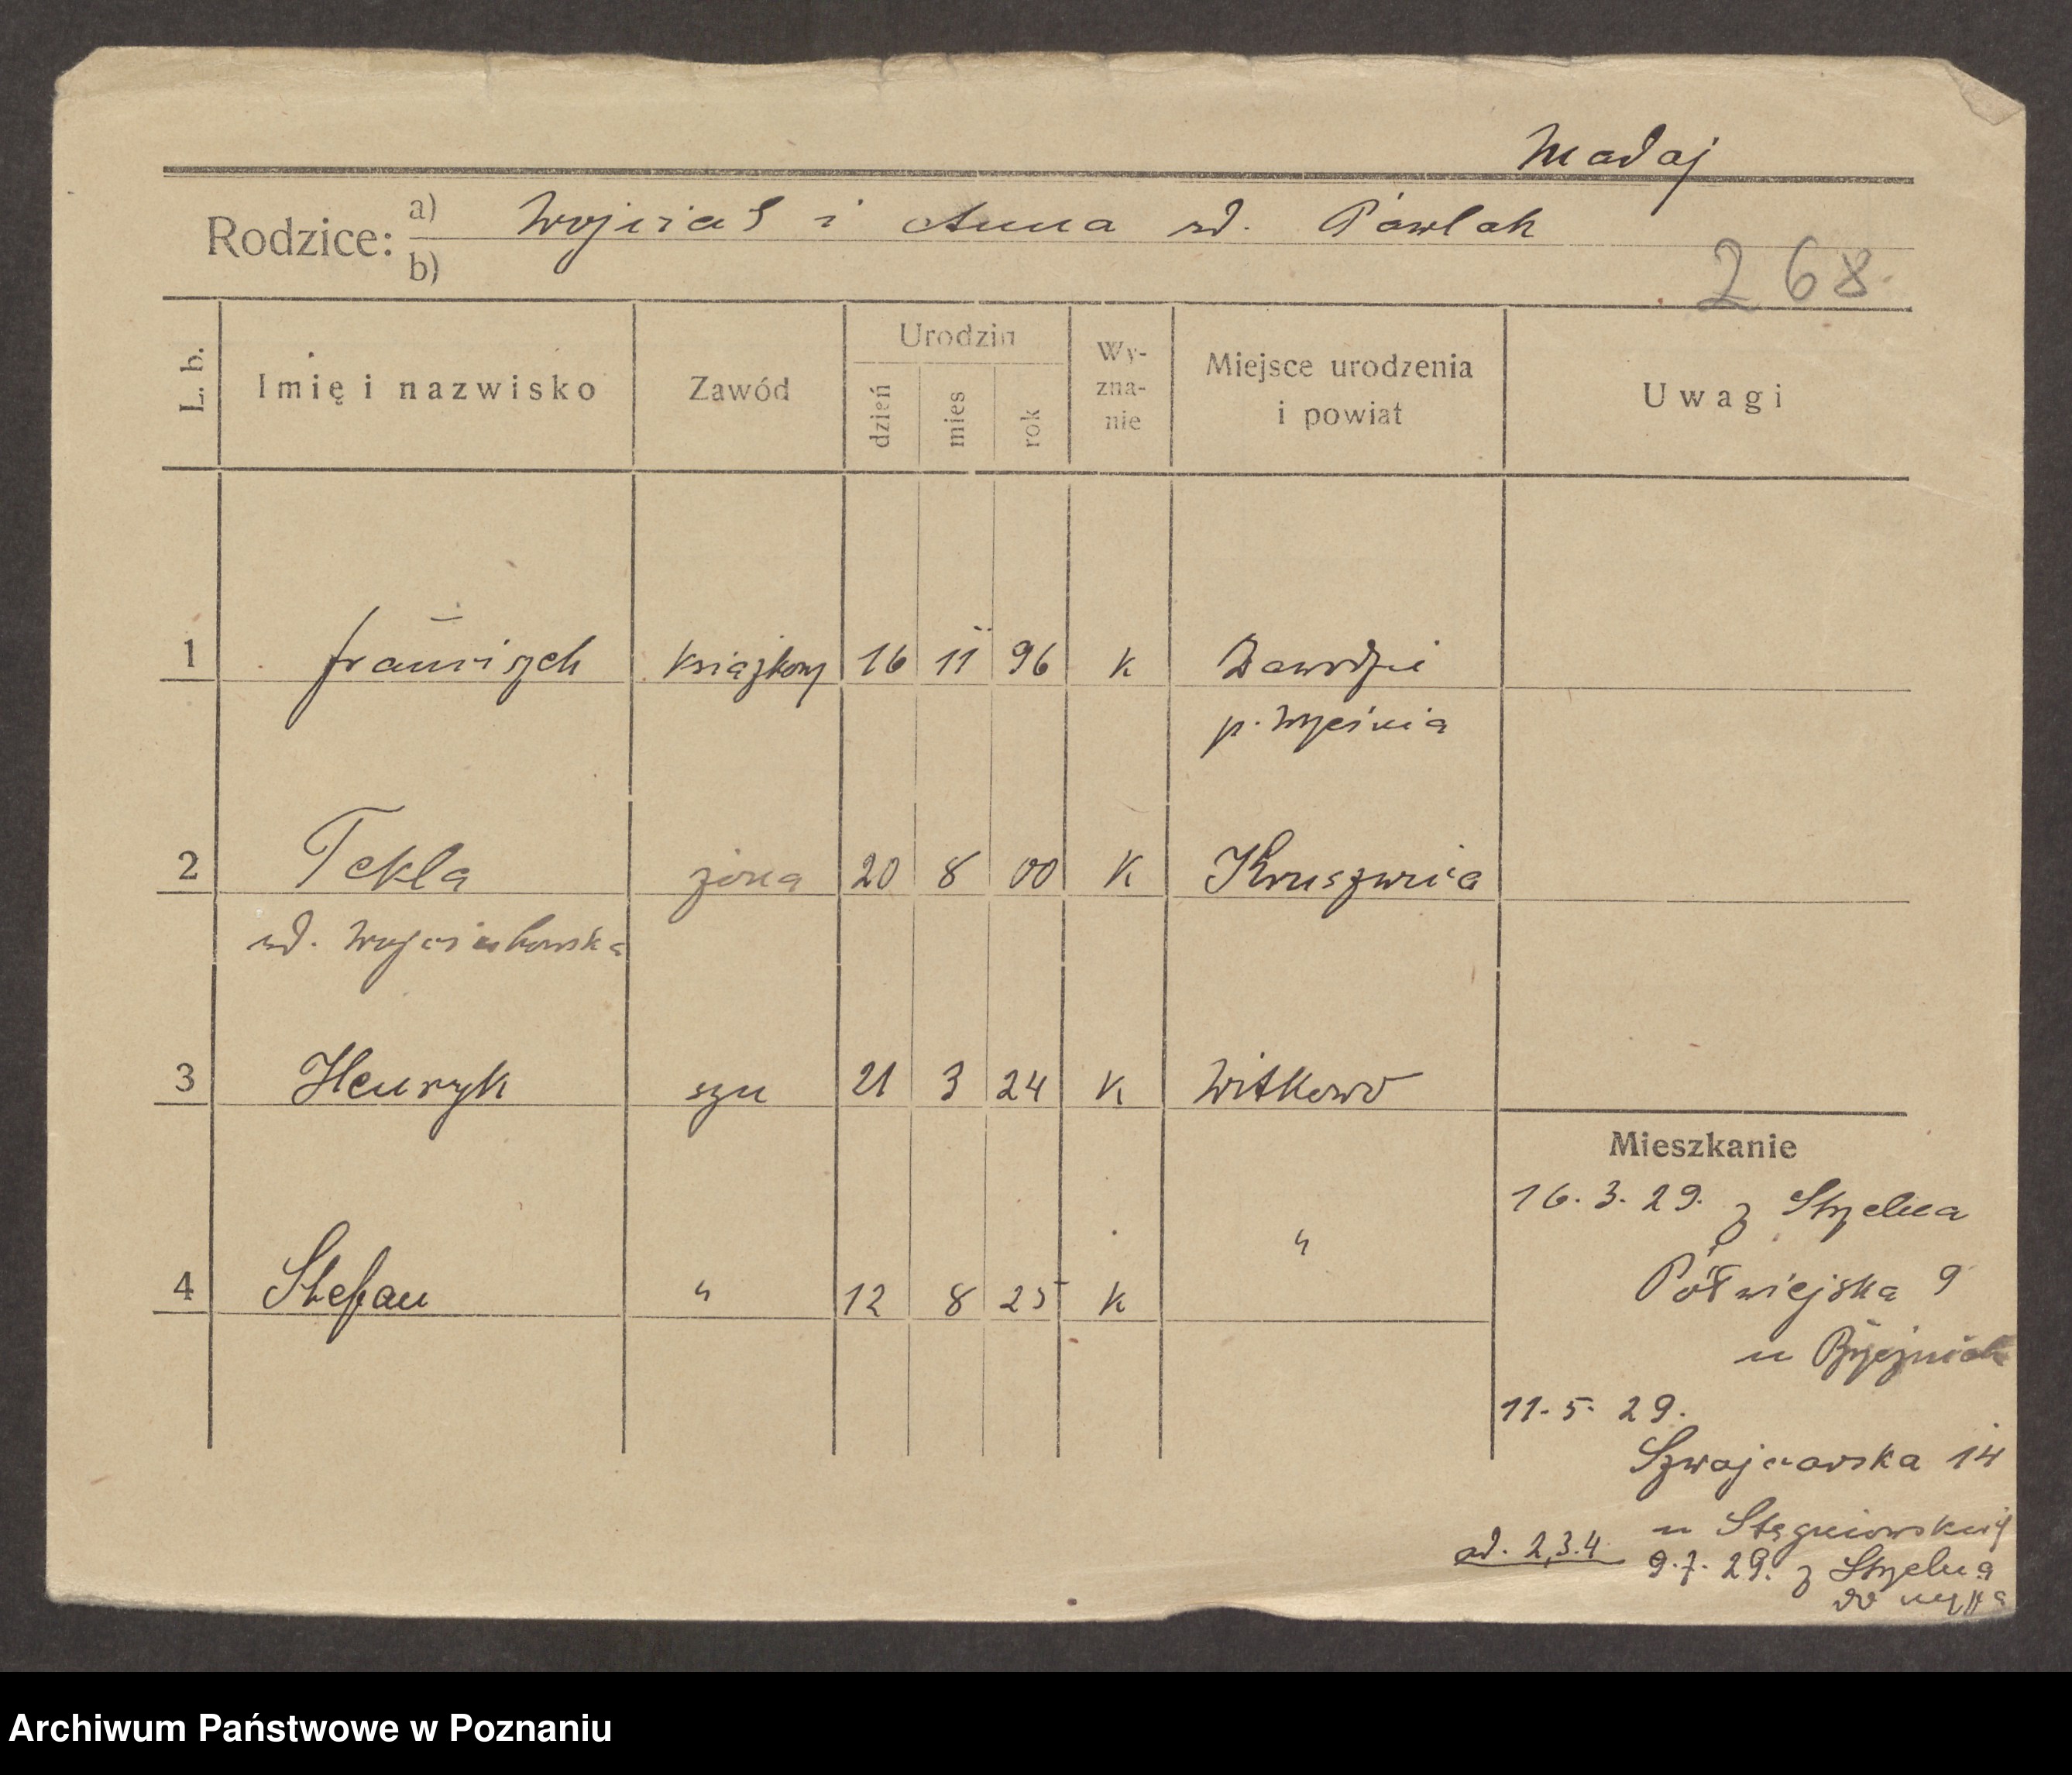 Madaj
Rodzice: a) Wojciech i Anna zd. Pawlak
b)
268
L. b. Imię i nazwisko Zawód Urodzin dzień mies rok Wy-zna-nie Miejsce urodzenia i powiat Uwagi
1 Franciszek książkowy 16 11 96 k Zawodzie
p. Września
2 Tekla żona 20 8 00 K Kruszwica
zd. Wojciechowska
3 Henryk syn 21 3 24 K Witkowo
Mieszkanie
16. 3. 29. z Strzelna
4 Stefan " 12 8 25 k "
Półwiejska 9
u
11. 5. 29.
Szwajcarska 14
u
ad. 2,3.4 9.7. 29. z Strzelna
do męża
Archiwum Państwowe w Poznaniu